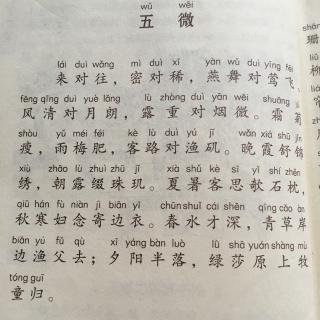 wǔ wēi
五 微
lái duì wǎng mì duì xī yàn wǔ duì yīng fēi
来对往，密对稀，燕舞对莺飞。
fēng qīng duì yuè lǎng lù zhòng duì yān wēi shuāng
风清对月朗，露重对烟微。霜菊
shòu yǔ méi féi kè lù duì yú jī wǎn xiá shū jǐn
瘦，雨梅肥，客路对渔矶。晚霞舒锦
xiù zhāo lù zhuì zhū jī xià shǔ kè sī yī shí zhěn
绣，朝露缀珠玑。夏暑客思欹石枕，
qiū hán fù niàn jì biān yī chūn shuǐ cái shēn qīng cǎo àn
秋寒妇念寄边衣。春水才深，青草岸
biān yú fǔ qù xī yáng bàn luò lǜ shā yuán shàng mù
边渔父去；夕阳半落，绿莎原上牧
tóng guī
童归。